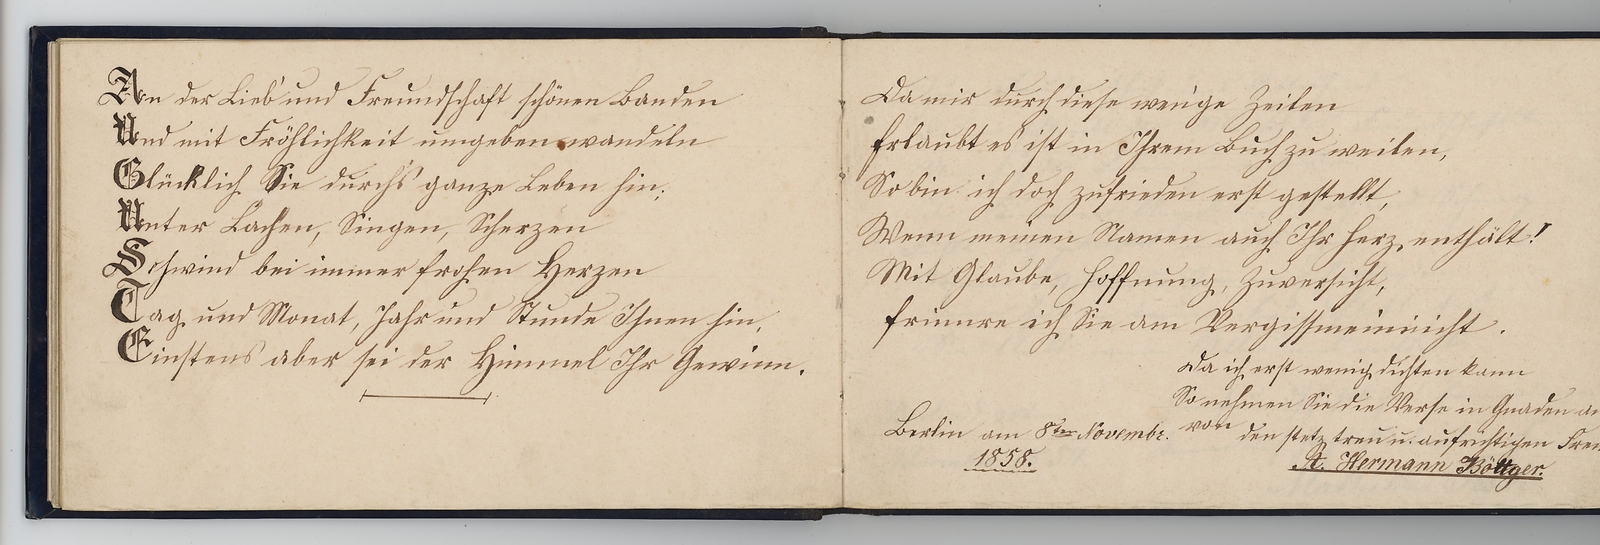 An der Lieb' und Freundschaft schönen Banden
Und mit Fröhlichkeit umgeben wandeln
Glücklich Sie durch's ganze Leben hin;
Unter Lachen, Singen, Scherzen
Schwind bei immer frohen Herzen
Tag und Monat, Jahr und Stunde Ihnen hin,
Einstens aber sei der Himmel Ihr Gewinn.
Da mir durch diese wen'ge Zeilen
Erlaubt es ist in Ihrem Buch zu weilen,
So bin ich doch zufrieden erst gestellt,
Wenn meinen Namen auch Ihr Herz enthält!
Mit Glaube, Hoffnung, Zuversicht,
Erinnre ich Sie am Vergissmeinnicht.
Da ich erst wenig dichten kann
So nehmen Sie die Verse in Gnaden an
von den stetz treu u. aufrichtigen
Berlin am 8ten Novembr.
1858.
A. Hermann Böttger.